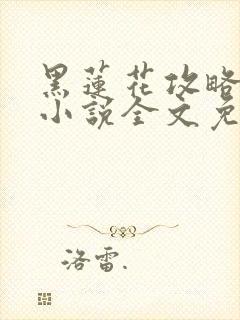 黑蓮花攻略
小說全文免
洛雷.